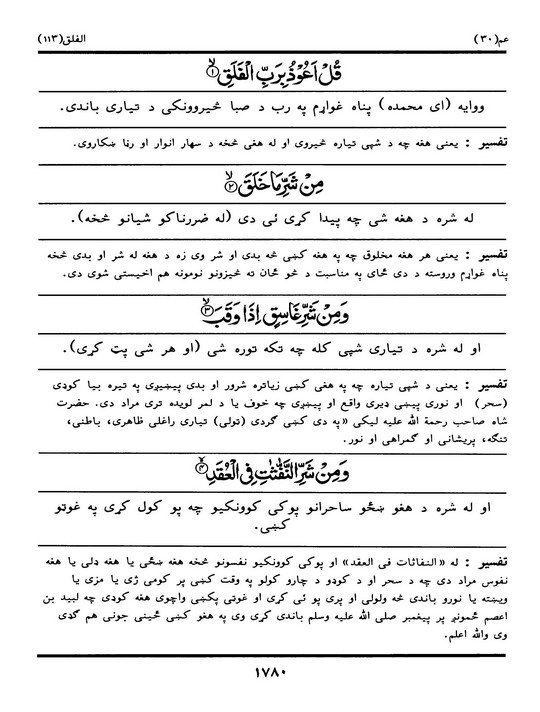 عم(۳۰)
الفلق(۱۱۳)
قُلْ اَعُوْذُ بِرَبِّ الْفَلَقِ ۙ﴿۱﴾
ووايه (ای محمده) پناه غواړم په رب د صبا څيروونکی د تياری باندی.
تفسير : يعنی هغه چه د شپی تياره څيروی او له هغی څخه د سهار انوار او رڼا ښکاروی.
مِنْ شَرِّ مَا خَلَقَ ۙ﴿۲﴾
له شره د هغه شی چه پيدا کړی ئی دی (له ضررناکو شيانو څخه).
تفسير : يعنی هر هغه مخلوق چه په هغه کښی څه بدی او شر وی زه د هغه له شر او بدی څخه
پناه غواړم وروسته د دی ځای په مناسبت د څو ځان ته څيزونو نومونه هم اخيستی شوی دی.
وَمِنْ شَرِّ غَاسِقٍ اِذَا وَقَبَ ۙ﴿۳﴾
او له شره د تياری شپی کله چه تکه توره شی (او هر شی پټ کړی).
تفسير : يعنی د شپی تياره چه په هغی کښی زياتره شرور او بدی پيښيږی په تيره بيا کوډی
(سحر) او نوری پيښی ډيری واقع او پيښيږی چه خوف يا د لمر لويده تری مراد دی. حضرت
شاه صاحب رحمة الله عليه ليکی «په دی کښی ګردی (ټولی) تياری راغلی ظاهری، باطنی،
تنګه، پريشانی او ګمراهی او نور.
وَمِنْ شَرِّ النَّفّٰثٰتِ فِی الْعُقَدِ ۙ﴿۴﴾
او له شره د هغو ښځو ساحرانو پوکی کوونکيو چه پو کول کړی په غوټو
کښی.
تفسير : له «النفاثات فی العقد» او پوکی کوونکيو نفسونو څخه هغه ښځی يا هغه ډلی يا هغه
نفوس مراد دی چه د سحر او د کوډو د چارو کولو په وقت کښی پر کومی ژی يا مزی يا
ويښته يا نورو باندی څه ولولی او پری پو ئی کړی او غوټی پکښی واچوی هغه کوډی چه لبيد بن
اعصم ځمونږ پر پيغمبر صلی الله عليه وسلم باندی کړی وی په هغو کښی ځينی جونی هم ګډی
وی والله اعلم.
۱۷۸۰